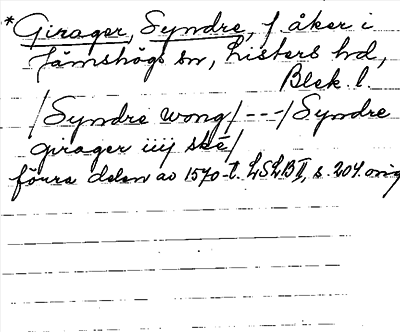 *Girager, Syndre, f åker i
Jämshögs sn, Listers hd,
Blek. l.
/Syndre wong/ --- /Syndre
girager iiij ske/
förra delen av 1570-t. LSLB II, s. 204. orig